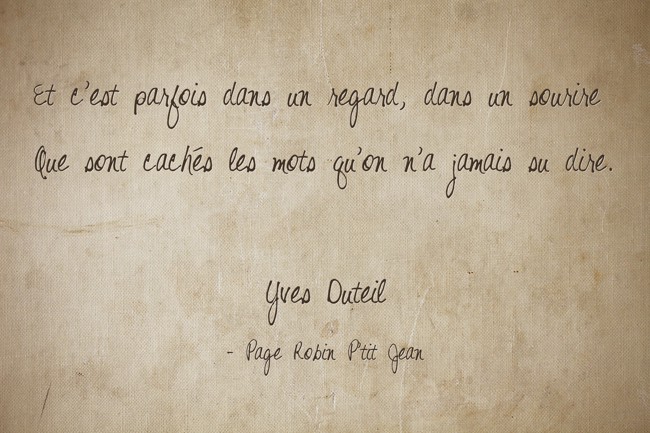 Et c'est parfois dans un regard, dans un sourire
Que sont cachés les mots qu'on n'a jamais su dire.
Yves Duteil
- Page Robin P'tit Jean